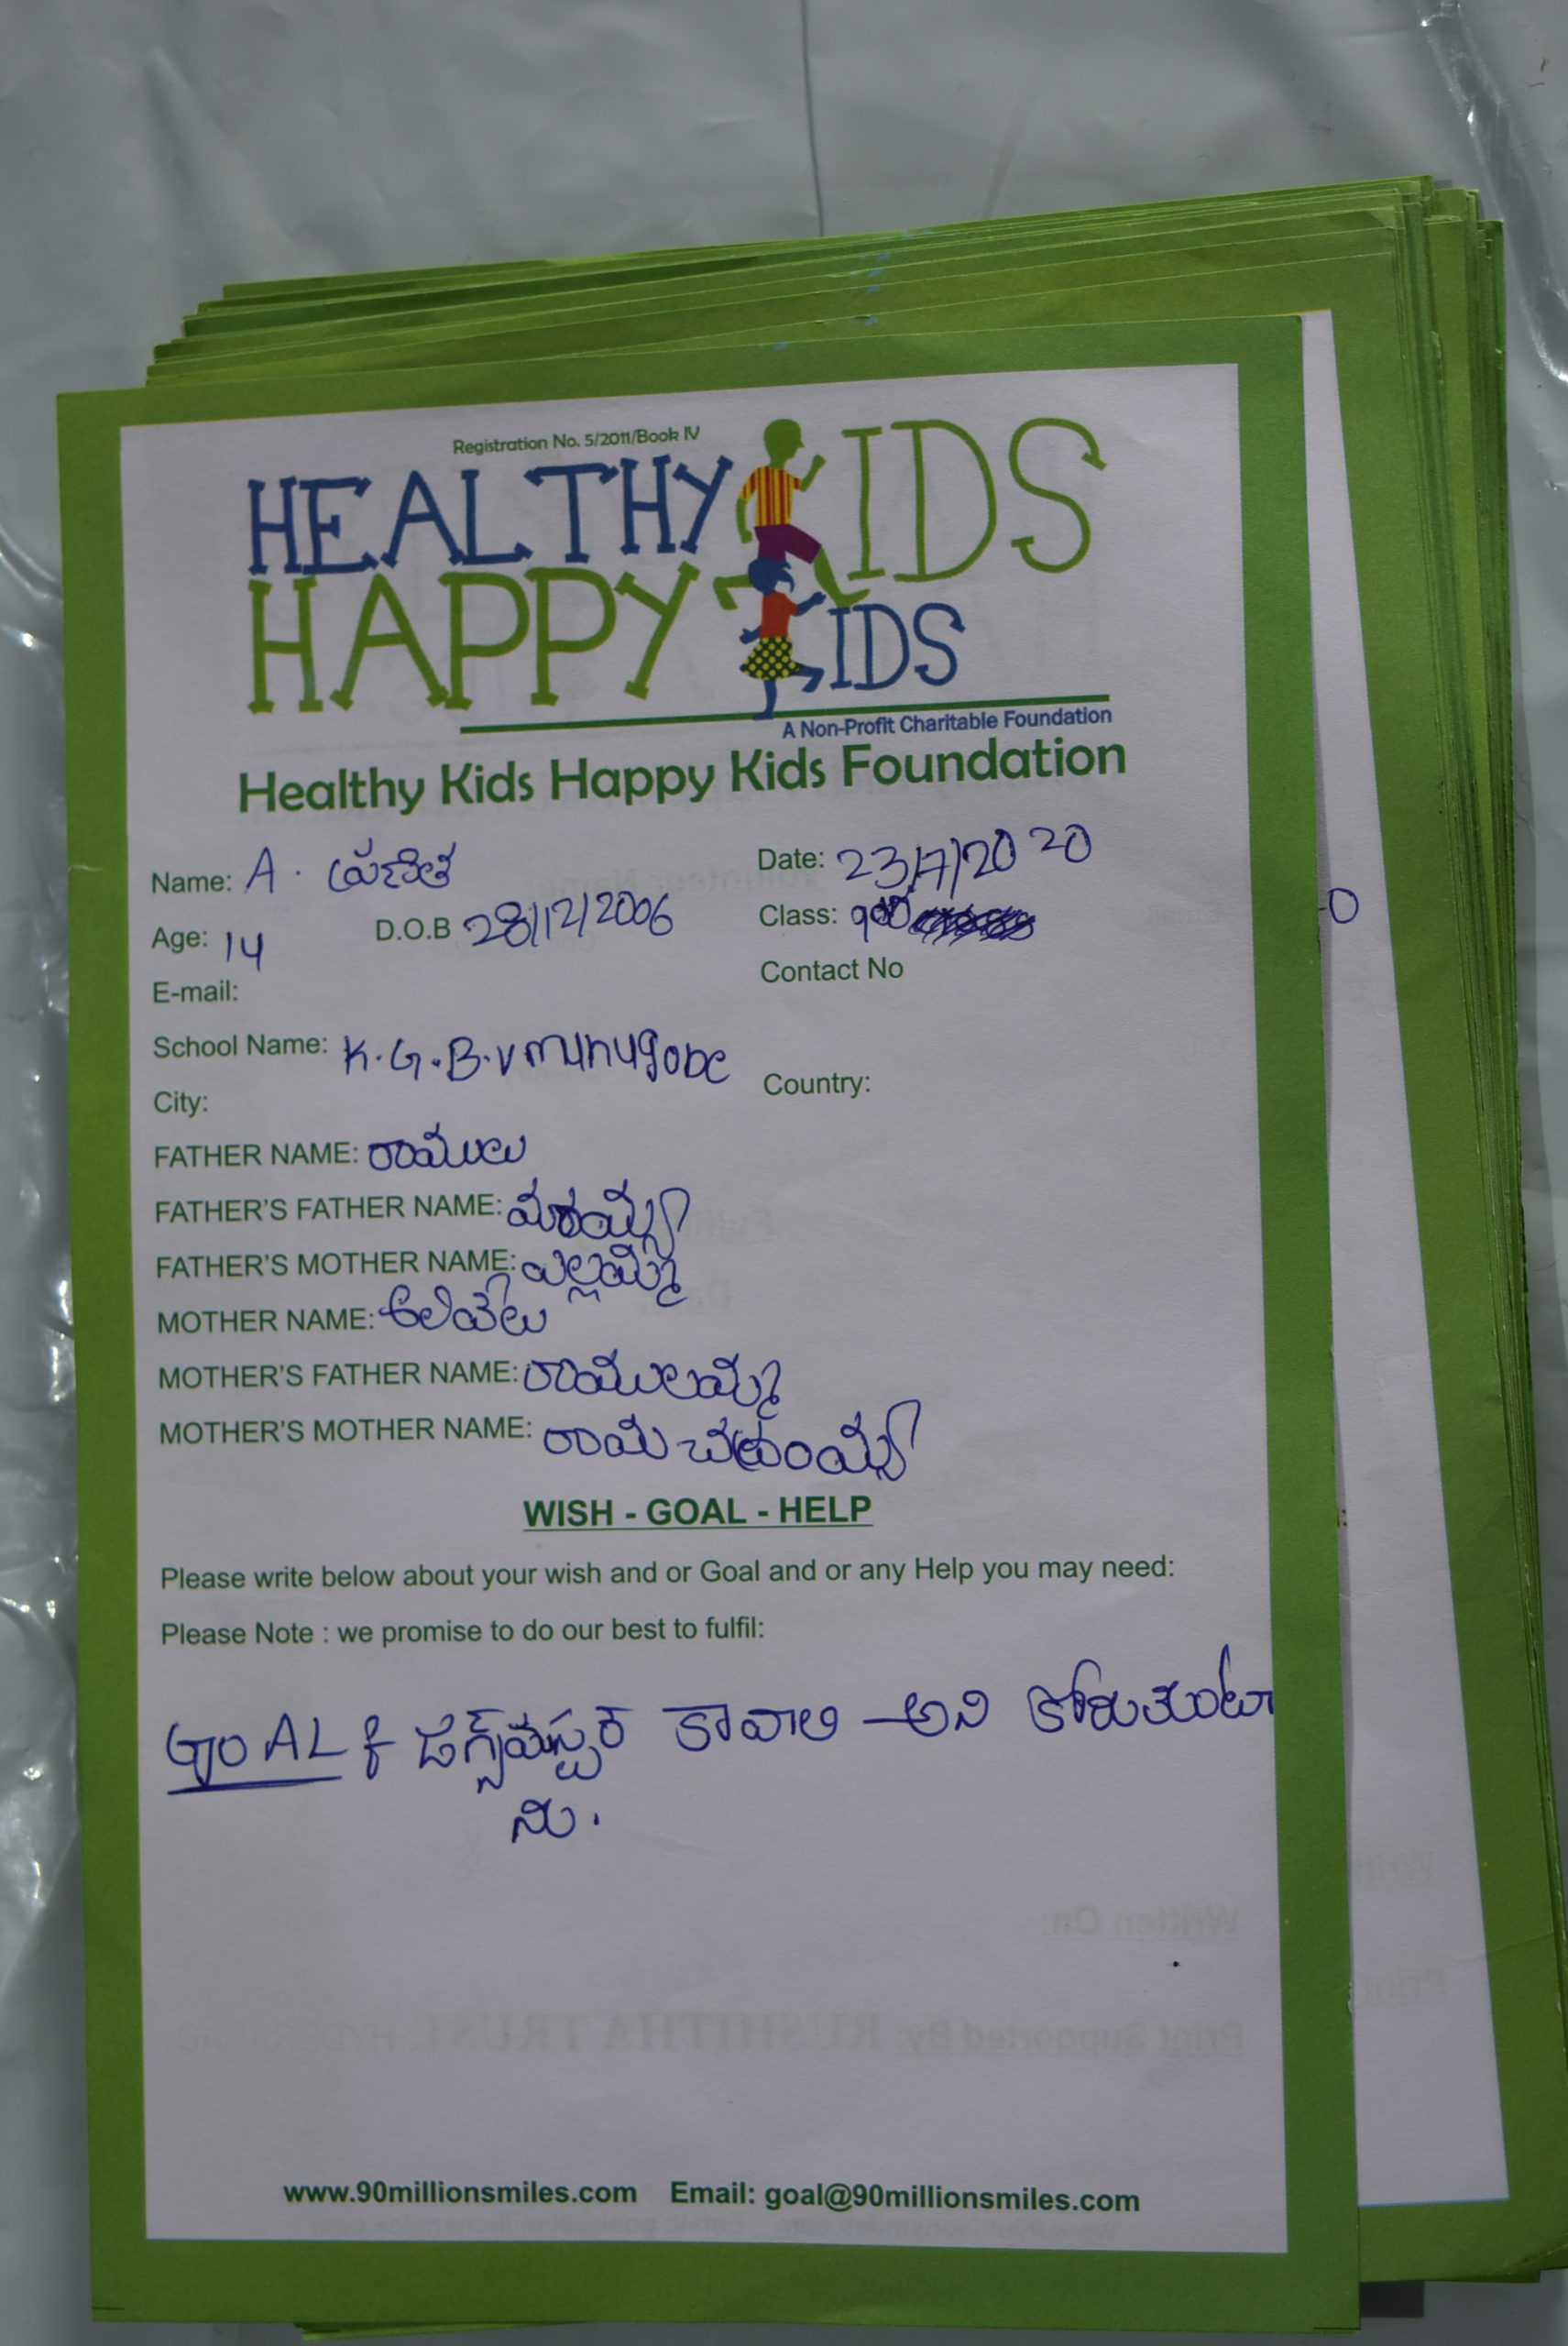 Registration No. 5/2011/Book IV
HEALTHY KIDS
HAPPY KIDS
A Non-Profit Charitable Foundation
Healthy Kids Happy Kids Foundation
Name: A. ప్రణిత Date: 23/7/2020
Age: 14 D.O.B 28/12/2006 Class: 9th
E-mail: Contact No
School Name: K.G.B.V munugode
City: Country:
FATHER NAME: రాములు
FATHER'S FATHER NAME:
FATHER'S MOTHER NAME: ఎల్లమ్మ
MOTHER NAME: అలివేలు
MOTHER'S FATHER NAME: రాములమ్మ
MOTHER'S MOTHER NAME:
WISH - GOAL - HELP
Please write below about your wish and or Goal and or any Help you may need:
Please Note : we promise to do our best to fulfil:
GOAL కావాలి అని కోరుకుంటా
ను.
www.90millionsmiles.com Email: goal@90millionsmiles.com